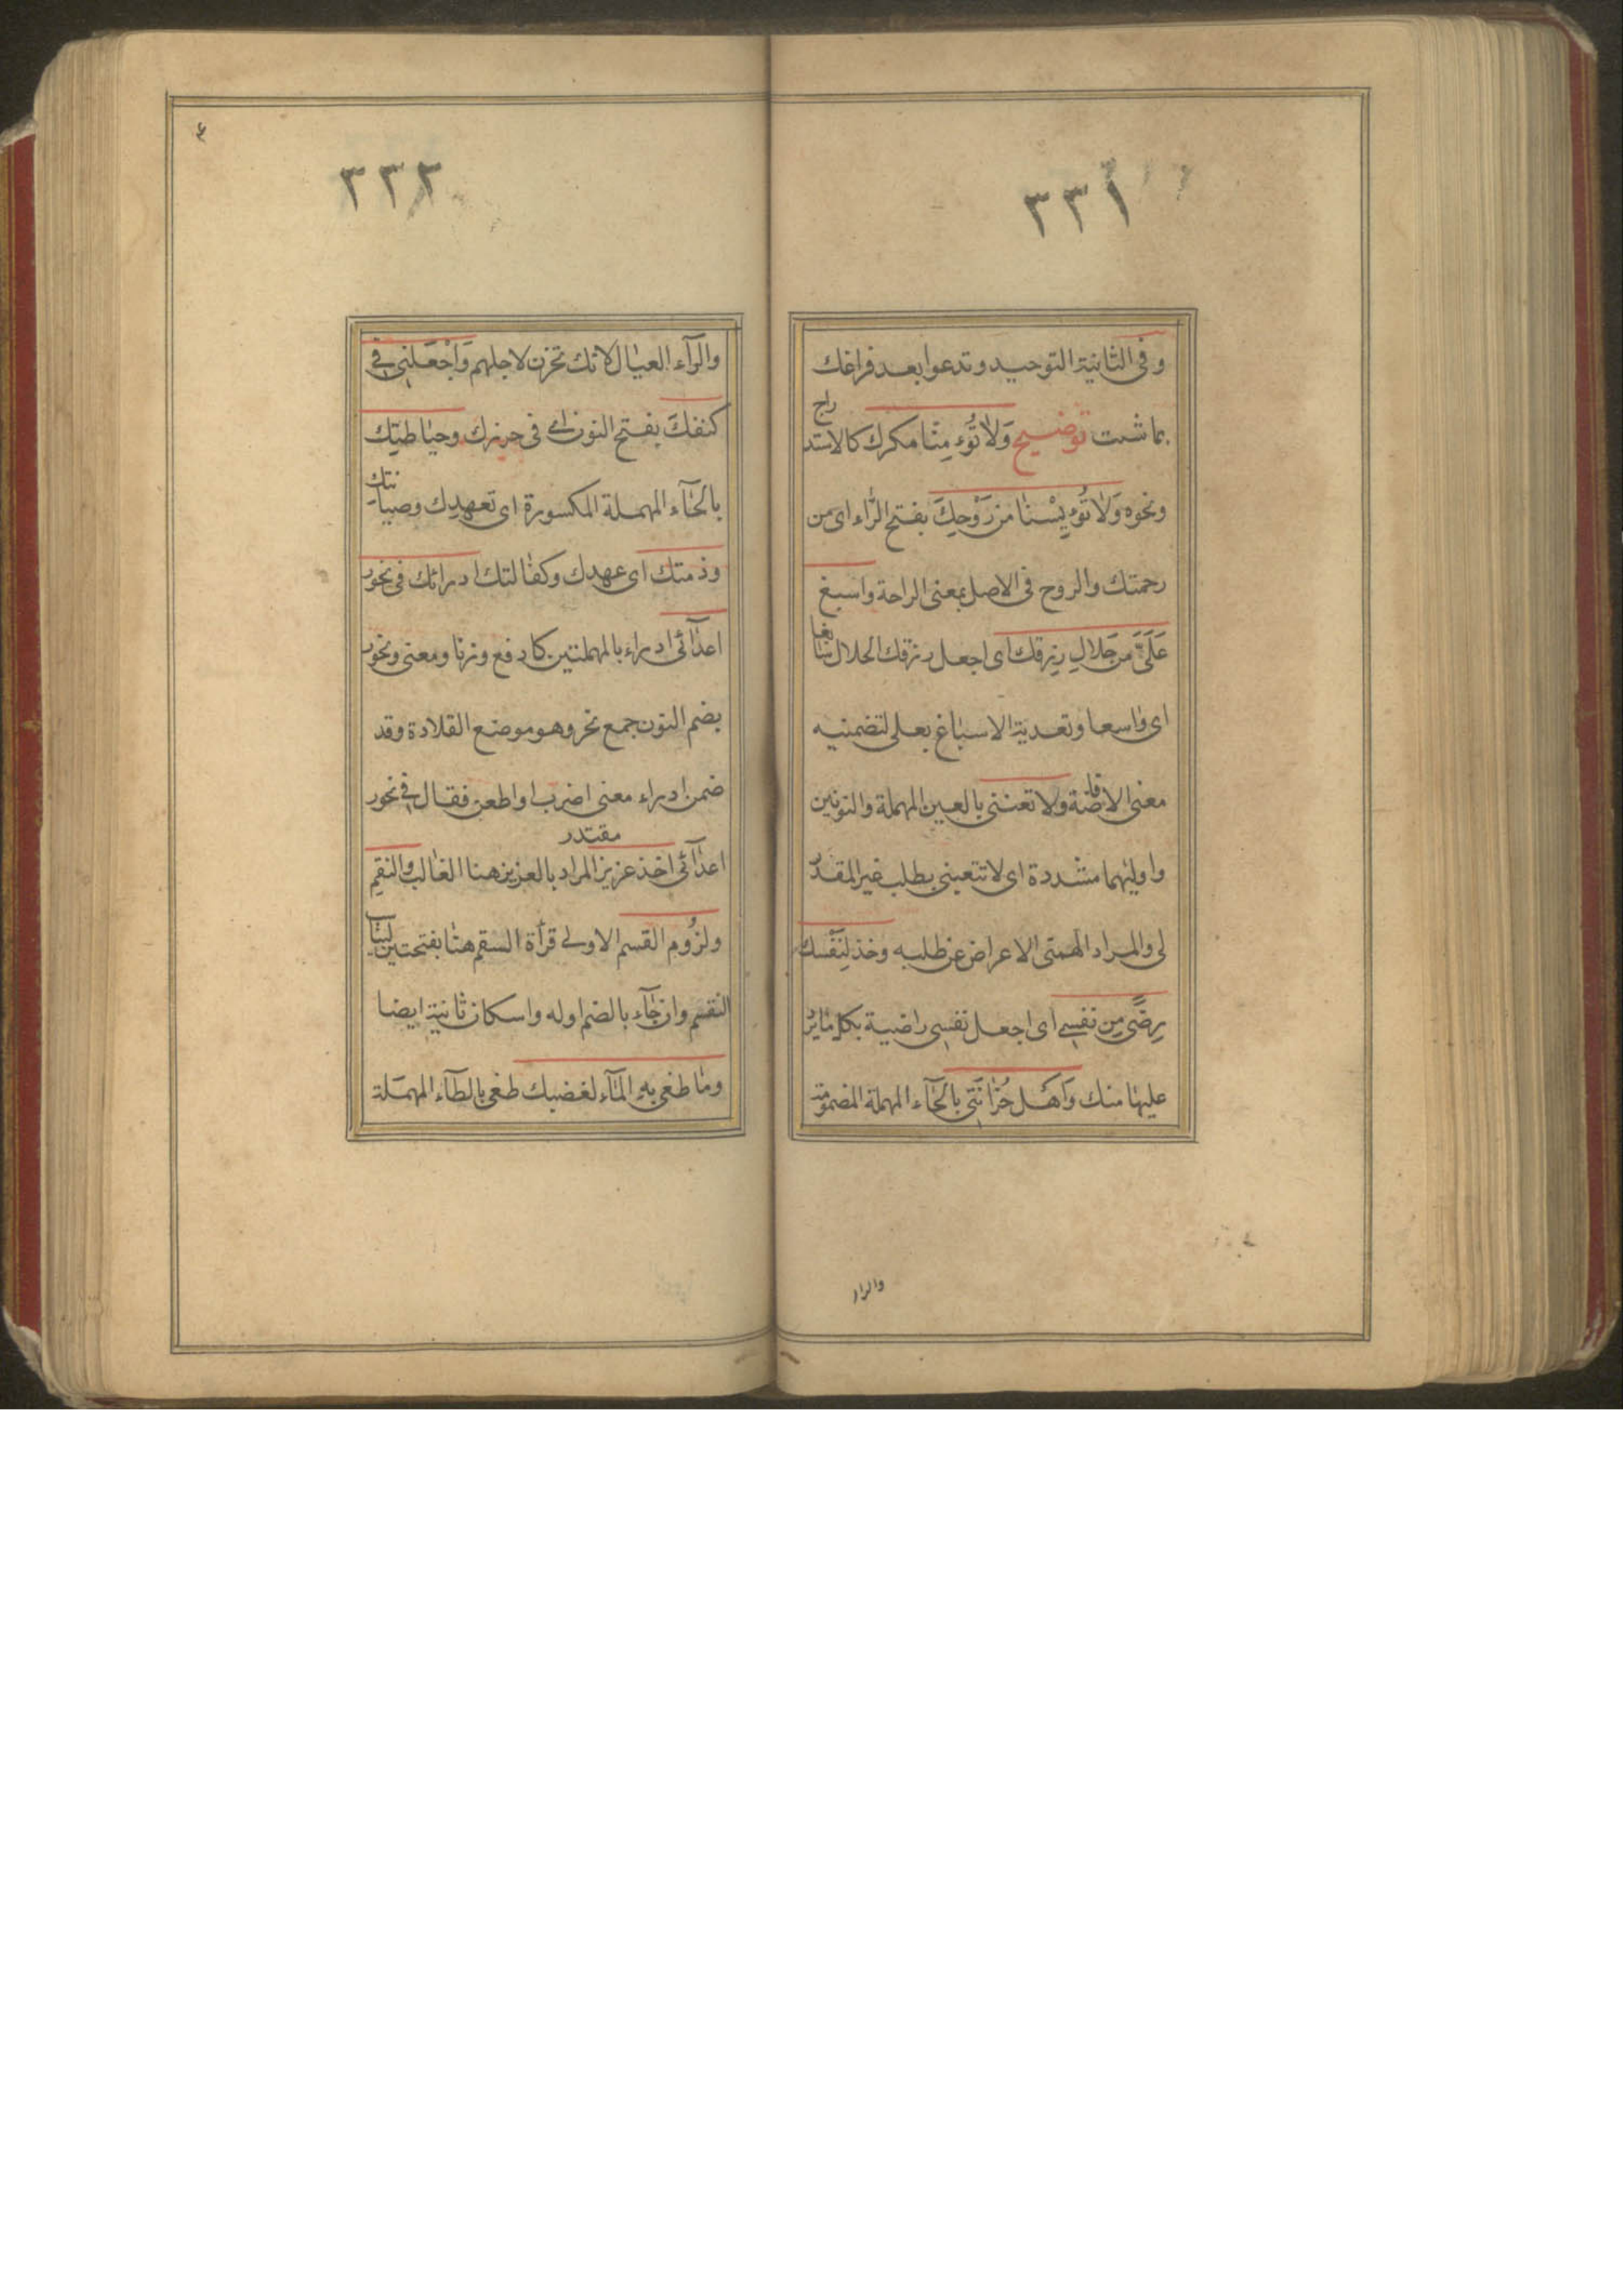 ٣٣١
وفى الثانية التوحيد وتدعوا بعد فراغك
بما شئت توضيح وَلٰا تُؤمِنّا مكرك كالاستدراج
ونحوه وَلٰا تُؤيِسْنٰا من رَوْحِكَ بفتح الرّاء اى من
رحمتك والروح فى الاصل بمعنى الراحة واسبغ
عَلَيَّ من حَلالِ رِزقك اى اجعل رزقك الحلال سابغا
اى واسعا وتعدية الاسباغ بعلى لتضمنيه
معنى الافاضة ولا تعننى بالعين المهملة والنونين
واوليهما مشددة اى لا تتعبنى بطلب غير المقدر
لى والمراد الهمنى الاعراض عن طلبه وخذ لِنَفْسك
رِضًى مِن نفسى اى اجعل نفسى راضية بكل ما يرد
عليها منك وَاَهْل حُزانَتى بالحٰآء المهملة المضمومة
والزا
٣٣٢
والزآء العيٰال لانك تحزن لاجلهم وَاجْعَلنى فى
كنفكَ بفتح النون اى فى حرزك وحيٰاطتِك
بالحٰآء المهملة المكسورة اى تعهدك وصيانتك
وذمتك اى عهدك وكفٰالتك ادرائك فى نحور
اعدٰآئى ادراء بالمهملتين كادفع وزنا ومعنى ونحور
بضم النون جمع نحر وهو موضع القلادة وقد
ضمن ادراء معنى اضرب او اطعن فقال فى نحور
اعدٰآئى اخذ عزيز مقتدر المراد بالعزيز هنا الغٰالب والنقم
ولزُوم القسم الاولى قرأة السقم هنٰا بفتحتين ليناسب
النقم وان جٰآء بالضم اوله واسكان ثانية ايضا
ومٰا طغى به المٰآء لغضبك طغى بالطآء المهمَلة